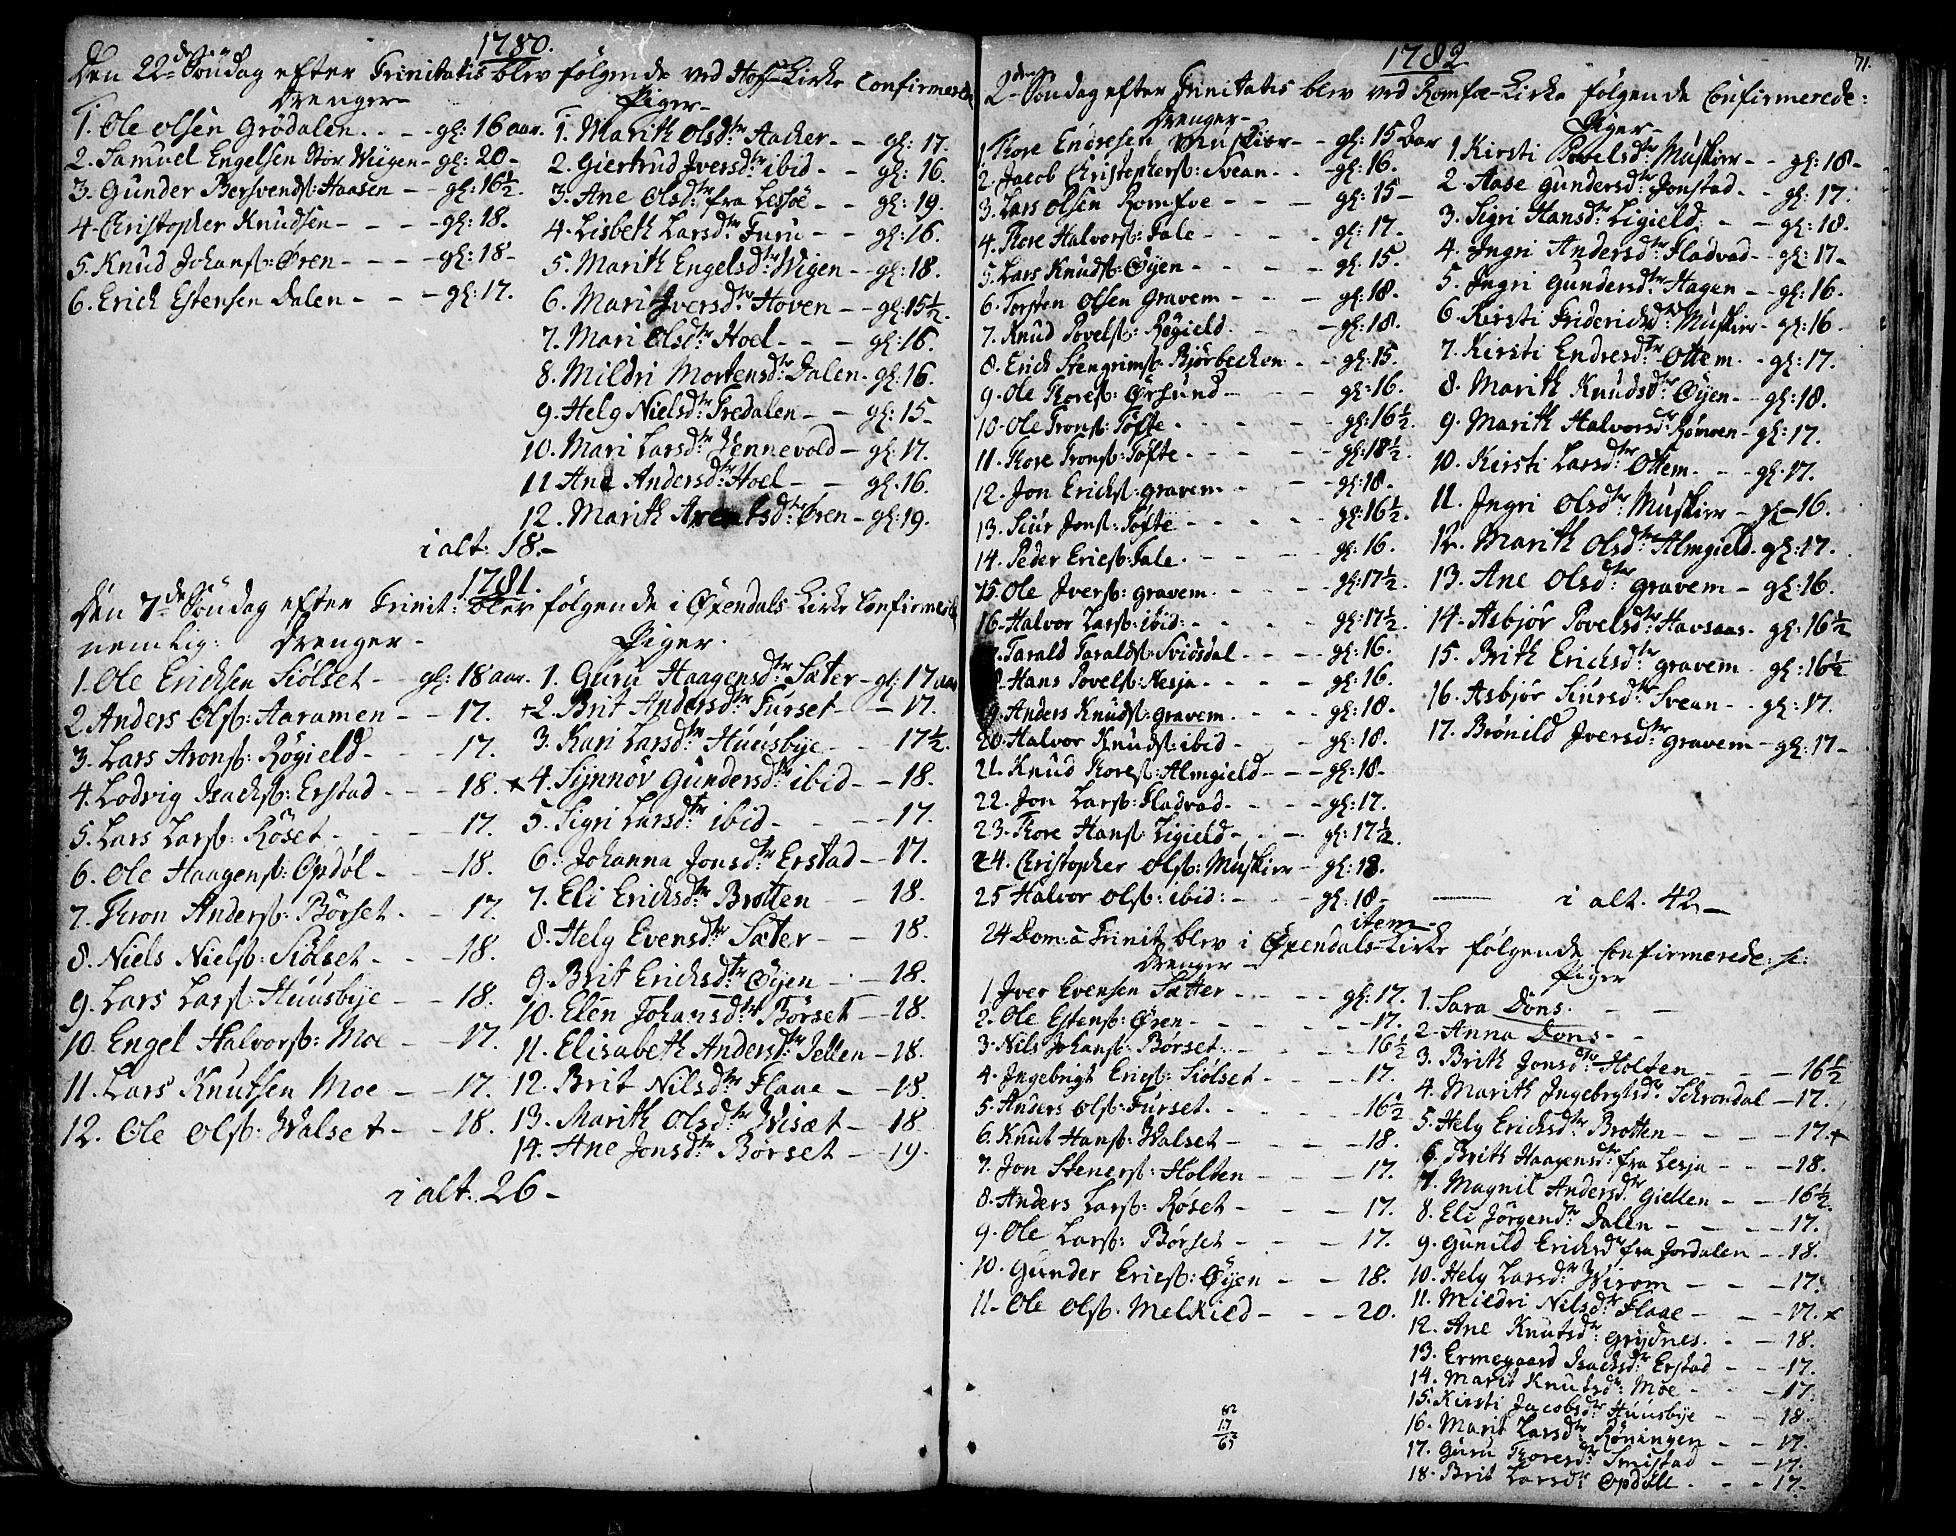 1780.
Den 22de Söndag efter Trinitatis blev følgende ved Hoff-Kirke Confirmerede
Drenger-
1. Ole Olsen Grödalen - - - gl: 16 aar.
2. Samuel Engelsen Stor Wiigen - gl: 20 -
3. Gunder Bersvends: Haasen - gl: 16½.
4. Christopher Knudsen - - - gl: 18.
5. Knud Johanß: Øren - - - gl: 18 -
6. Erich Estensen Dalen - - - gl: 17.
Piger-
1. Marith Olsdtr Aacher - - gl: 17.
2. Giertrud Iversdtr: ibid - - gl: 16.
3. Ane Olsdtr: fra Lessöe - - gl: 19.
4. Lisbeth Larsdtr: Furu - - gl: 16.
5. Marith Engelsdtr: Wigen - gl: 18.
6. Mari Iversdtr: Hoven - - gl: 15½.
7. Mari Olsdtr: Hoel - - - gl: 16.
8. Mildri Mortensdtr: Dalen - gl: 16.
9. Helg Nielsdtr: Tredalen - - gl: 15 -
10. Mari Larsdtr: Jennevold - gl: 17.
11 Ane Andersdtr: Hoel - - gl: 16.
12. Marith Arentsdtr: Øren - gl: 19.
i alt: 18. -
1781.
Den 7de Söndag efter Trinit: blev følgende i Øxendals Kirke Confirmerede
nemlig: Drenger -
1. Ole Erichsen Siölset - gl: 18 aar.
2. Anders Olsß: Aaramen - - 17.
3. Lars Aronß: Rögield - - 17.
4. Lodvig Isachß: Erstad - - - 18.
5. Lars Larß: Röset - - - 17.
6. Ole Haagenß: Opdöl - - 18.
7. Thron Anderß: Börset - - 17.
8. Niels Nielß: Siölset - - 18.
9. Lars Larß: Huusbye - - 18.
10. Engel Halvorß: Moe - - 17.
11. Lars Knutsen Moe - - 17.
12. Ole Olß: Walset - - 18.
Piger.
1. Guru Haagensdtr: Sæter - gl: 17 aar
+2. Brit Andersdtr: Furset - - 17.
3. Kari Larsdtr: Huusbye - - 17½.
x4. Synnöv Gundersdtr: ibid - - 18.
5. Sigri Larsdtr: ibid - - - 17.
6. Johanna Jonsdtr: Erstad - - 17.
7. Eli Erichsdtr: Brotten - - 18.
8. Helg Evensdtr: Sæter - - 18.
9. Brit Erichsdtr: Öyen - - 18.
10. Elen Johansdtr: Börset - 18.
11. Elisabeth Andersdtr: Jellen - 18.
12. Brit Nilsdtr: Flaae - - 18.
13. Marith Olsdtr: Wisæt - 18
14. Ane Jonsdtr: Börset - 19.
i alt. 26 -
71.
1782
2den Söndag efter Trinitatis blev ved Romfæ-Kirke følgende Confirmerede:
Drenger -
1. Thore Endresen Muskier - - gl: 15 aar
2. Jacob Christopherß: Svean - - gl: 16.
3. Lars Olsen Romfoe - - - gl: 15 -
4. Thore Halvorß: Fale - - - gl: 17.
5. Lars Knudß: Öyen - - - - gl: 15.
6. Torsten Olsen Gravem - - - gl: 18.
7. Knud Povelß: Rögield - - gl: 18.
8. Erich Stengrimß: Biörbechen - - gl: 15
9. Ole Thoreß: Örsund - - - gl: 16.
10. Ole Tronß: Töfte - - - - gl: 16½.
11. Thore Tronß: Töfte - - - - gl: 18½.
12. Jon Erichß: Gravem - - - gl: 18.
13. Siur Jonß: Töfte - - - - gl: 16½.
14. Peder Ericß: Fale - - - - gl: 16.
15. Ole Iverß: Gravem - - - gl: 17½.
16. Halvor Larß: ibid: - - - - gl: 17½.
Tarald Taraldß: Svidsdal - - - gl: 16.
Hans Povelß: Nesja - - - - gl: 16.
Anders Knudß: Gravem - - - gl: 18.
20. Halvor Knudß: ibid - - - gl: 18.
21. Knud Thoreß: Almgield - - - gl: 18 -
22. Jon Larß: Fladvad - - - - gl: 17.
23. Thore Hanß: Ligield - - - gl: 17½.
24. Christopher Olß: Muskier - gl: 18.
25 Halvor Olß: ibid: - - gl: 18 -
Piger -
1. Kirsti Povelsdtr: Muskier - - gl: 18 -
2. Aase Gundersdtr: Jonstad - - gl: 17.
3. Sigri Hansdtr: Ligield - - gl: 18.
4. Ingri Andersdtr: Fladvad - - gl: 17 -
5. Ingri Gundersdtr: Hagen - - gl: 16.
6. Kirsti Friderichsdtr: Muskier - gl: 16 -
7. Kirsti Endresdtr: Ottem - - gl: 17.
8. Marith Knudsdtr: Öyen - - gl: 18.
9. Marith Halvorsdtr: Römoen - gl: 17.
10. Kirsti Larsdtr: Ottem - - - gl: 17.
11. Ingri Olsdtr: Muskier - gl: 16.
12. Marith Olsdtr: Almgield - gl: 17.
13. Ane Olsdtr: Gravem - gl: 16.
14. Asbjör Povelsdtr: Havsaas - gl: 16½
15. Brith Erichsdtr: Gravem - gl: 16½
16. Asbjör Siursdtr: Svean - - gl: 17.
17. Brönild Iversdtr: Gravem - gl: 17 -
i alt. 42 -
item -
24 Dom: a Trinit blev i Øxendals-Kirke følgende Confirmerede: sc:
Drenger -
1. Iver Evensen Sætter - - - gl: 17.
2. Ole Estenß: Øren - - - - - 17.
3. Nils Johanß: Börset - - - 16½
4. Ingebrigt Ericß: Siölset - - - 17.
5. Anders Olß: Furset - - - - 16½
6. Knut Hanß: Walset - - - - 18.
7. Jon Stenerß: Holten - - - 17.
8. Anders Larß: Röset - - - 17.
9. Ole Larß: Börset - - - 17.
10. Gunder Ericß: Öyen - - 18.
11. Ole Olß: Melkild - - - 20.
Piger
1. Sara Dons. - -
2. Anna Dons - -
3. Brith Jonsdtr: Holten - - - 16½
4. Marith Ingebrigtsdtr: Schrondal - 17.
5. Helg Erichsdtr: Brotten - - - 17. +
6. Brith Haagensdtr: fra Lesja - - - 18.
7. Magnil Andersdtr: Giellen - - 16½.
8. Eli Jörgendtr: Dalen - - - 17.
9. Gunild Erichsdtr fra Jordalen - - 18.
10. Helg Larsdtr: Wirom - - - 17.
11. Mildri Nilsdtr: Flaae - - - 17. x
12. Ane Knutsdtr: Grydnes - - - 18.
13. Ermegaard Isachsdtr: Erstad - - - 17.
14. Marit Knutsdtr: Moe - - - 17.
15. Kirsti Jacobsdtr: Huusbye - - 18.
16. Marit Larsdtr: Röningen - - 17.
17. Guru Thoresdtr: Smistad - - 17.
18. Brit Larsdtr: Opdöll - - - 17.
82
17
65